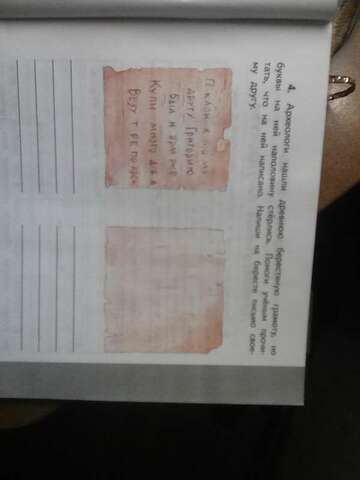 4. Археологи нашли древнюю берестяную грамоту, но
буквы на ней наполовину стёрлись. Помоги учёным прочи-
тать, что на ней написано. Напиши на бересте письмо свое-
му другу.
другу Григорию
был я
Купи много
Везу